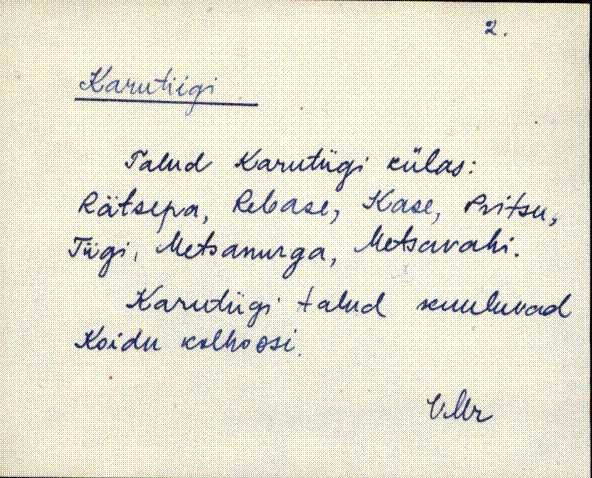 2.
Karutiigi
Talud Karutiigi külas:
Rätsepa, Rebase, Kase, Pritsu,
Tiigi, Metsanurga, Metsavahi.
Karutiigi talud kuuluvad
Koidu kolhoosi.
VMr